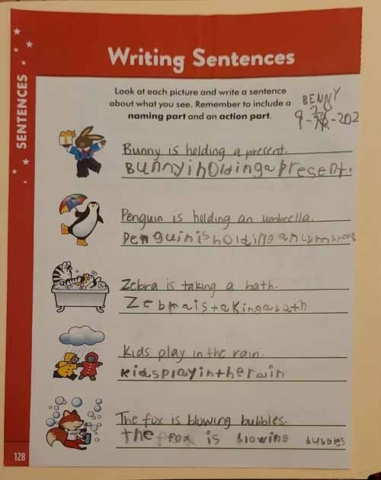 Writing Sentences
SENTENCES
Look at each picture and write a sentence
about what you see. Remember to include a
naming part and an action part.
BENNY
Bunny is holding a present.
Bunnyiholdingapresent.
Penguin is holding an umbrella.
Zebra is taking a bath.
Zebraistakingabath
Kids play in the rain.
kidsplayintherain
The fox is blowing bubbles.
the fox is blowing bubbles
128